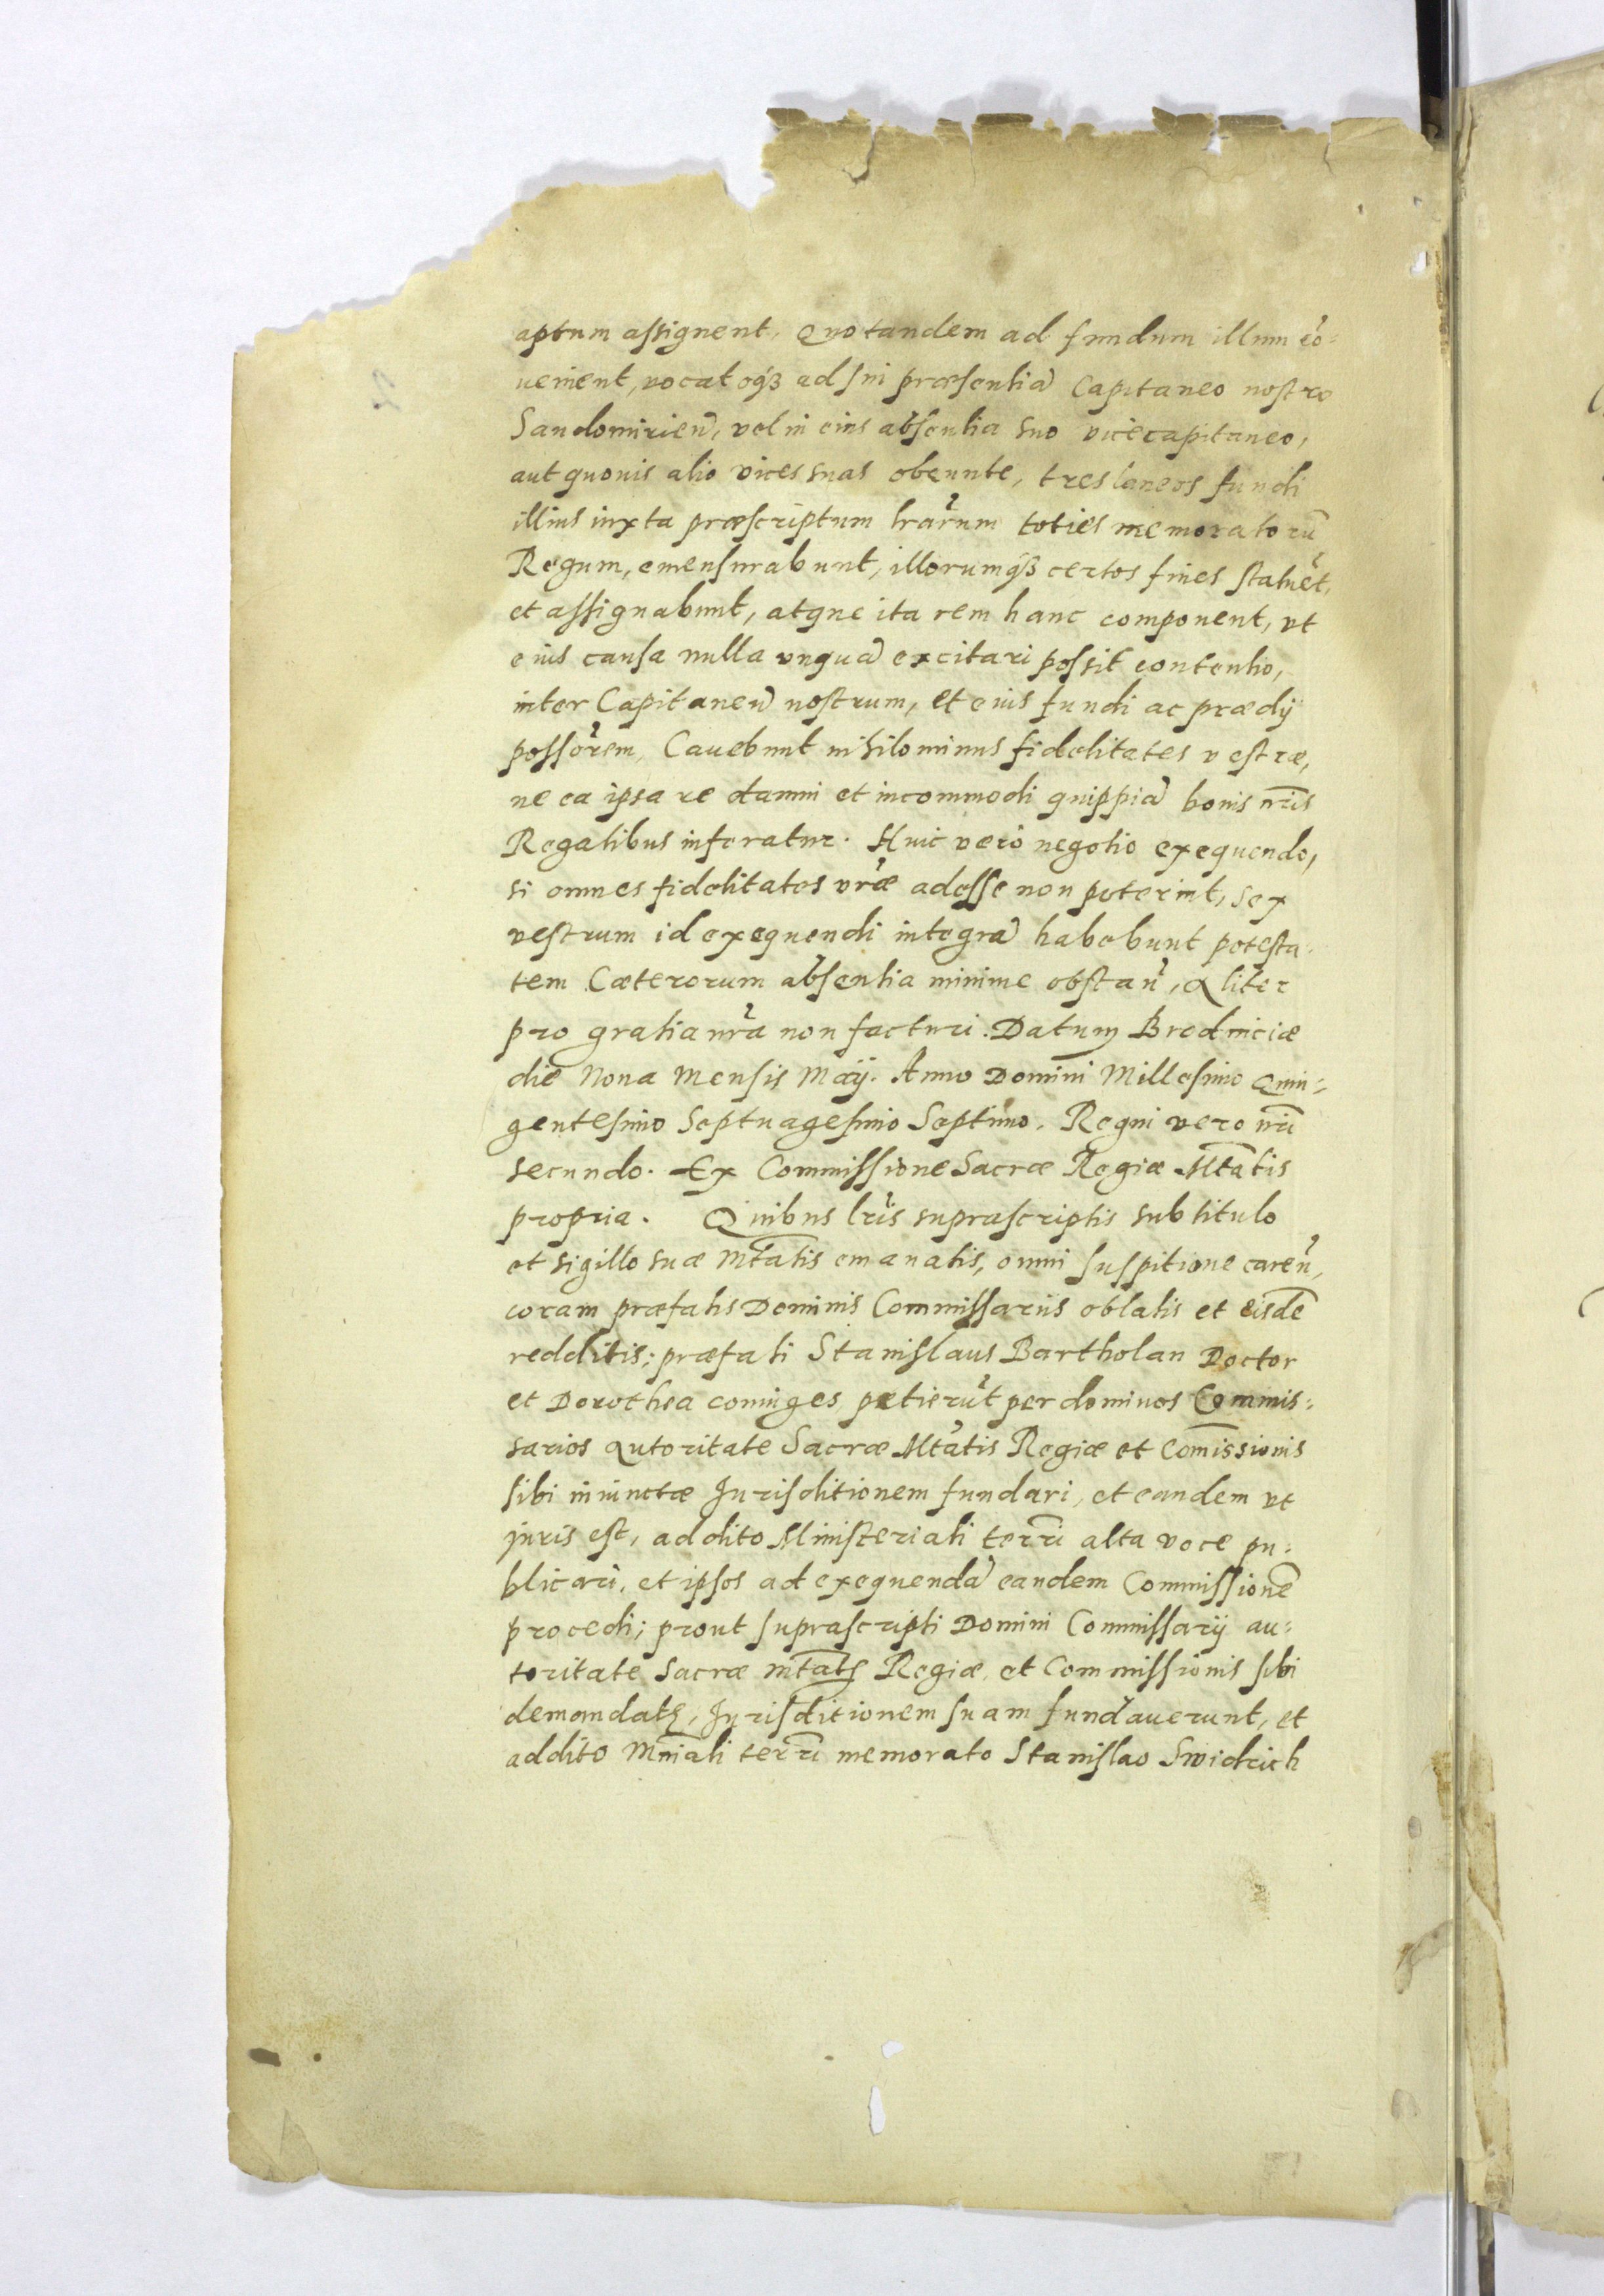 aptum assignent, Quo tandem ad fundum illum cō=
uenient, vocatoq̃ȝ ad sui præsentiā Capitaneo nostro
Sandomirien̄, vel in eius absentia suo vicecapitaneo,
aut quouis alio vices suas obeunte, tres laneos fundi
illius iuxta præscriptum lrārum toties memoratorū
Regum, emensurabunt, illorumq̃ȝ certos fines statuēt,
et assignabunt, atque ita rem hanc component, vt
eius causa nulla vnquā excitari possit contentio,
inter Capitaneū nostrum, et eius fundi ac prædij
possōrem, Cauebunt nihilominus fidelitates vestræ,
ne ea ipsa re damni et incommodi quippiā bonis nr̄is
Regalibus inferatur. Huic vero negotio exequendo,
si omnes fidelitates vrǣ adesse non poterint, sex
vestrum id exequendi integrā habebunt potesta=
tem Cæterorum absentia minime obstan̄, Aliter
pro gratia nrā non facturi. Datum Brodniciæ
die Nona Mensis Maij. Anno Domini Millesimo Quin=
gentesimo Septuagesimo Septimo. Regni vero nr̄i
secundo. Ex Commissione Sacræ Regiæ Mtātis
propria. Quibus lrīs suprascriptis sub titulo
et sigillo suæ Mtātis emanatis, omni suspitione caren̄,
coram præfatis Dominis Commissariis oblatis et eisdē
redditis; præfati Stanislaus Bartholan Doctor
et Dorothea coniuges petierūt per dominos Commis=
sarios Autoritate Sacræ Mtātis Regiæ et Com̄issionis
sibi iniunctæ Jurisditionem fundari, et eandem vt
juris est, addito Ministeriali terr̄i alta voce pu=
blicari, et ipsos ad exequendā eandem Commissionē
procedi; prout suprascripti Domini Commissarij au=
toritate Sacræ mtātȩ Regiæ et Commissionis sibi
demandatȩ, Jurisditionem suam fundauerunt, et
addito Mn̄iali terr̄i memorato Stanislao Swidrich